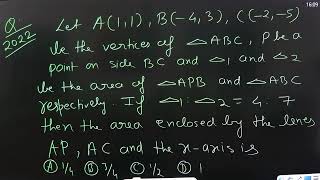 16:09
Q. Let A(1,1), B(-4,3), C(-2,-5)
2022 be the vertices of △ABC, P be a
point on side BC and △1 and △2
be the area of △APB and △ABC
respectively. If △1:△2 = 4:7
then the area enclosed by the lines
AP, AC and the x-axis is
Ⓐ 1/4 Ⓑ 3/4 Ⓒ 1/2 Ⓓ 1